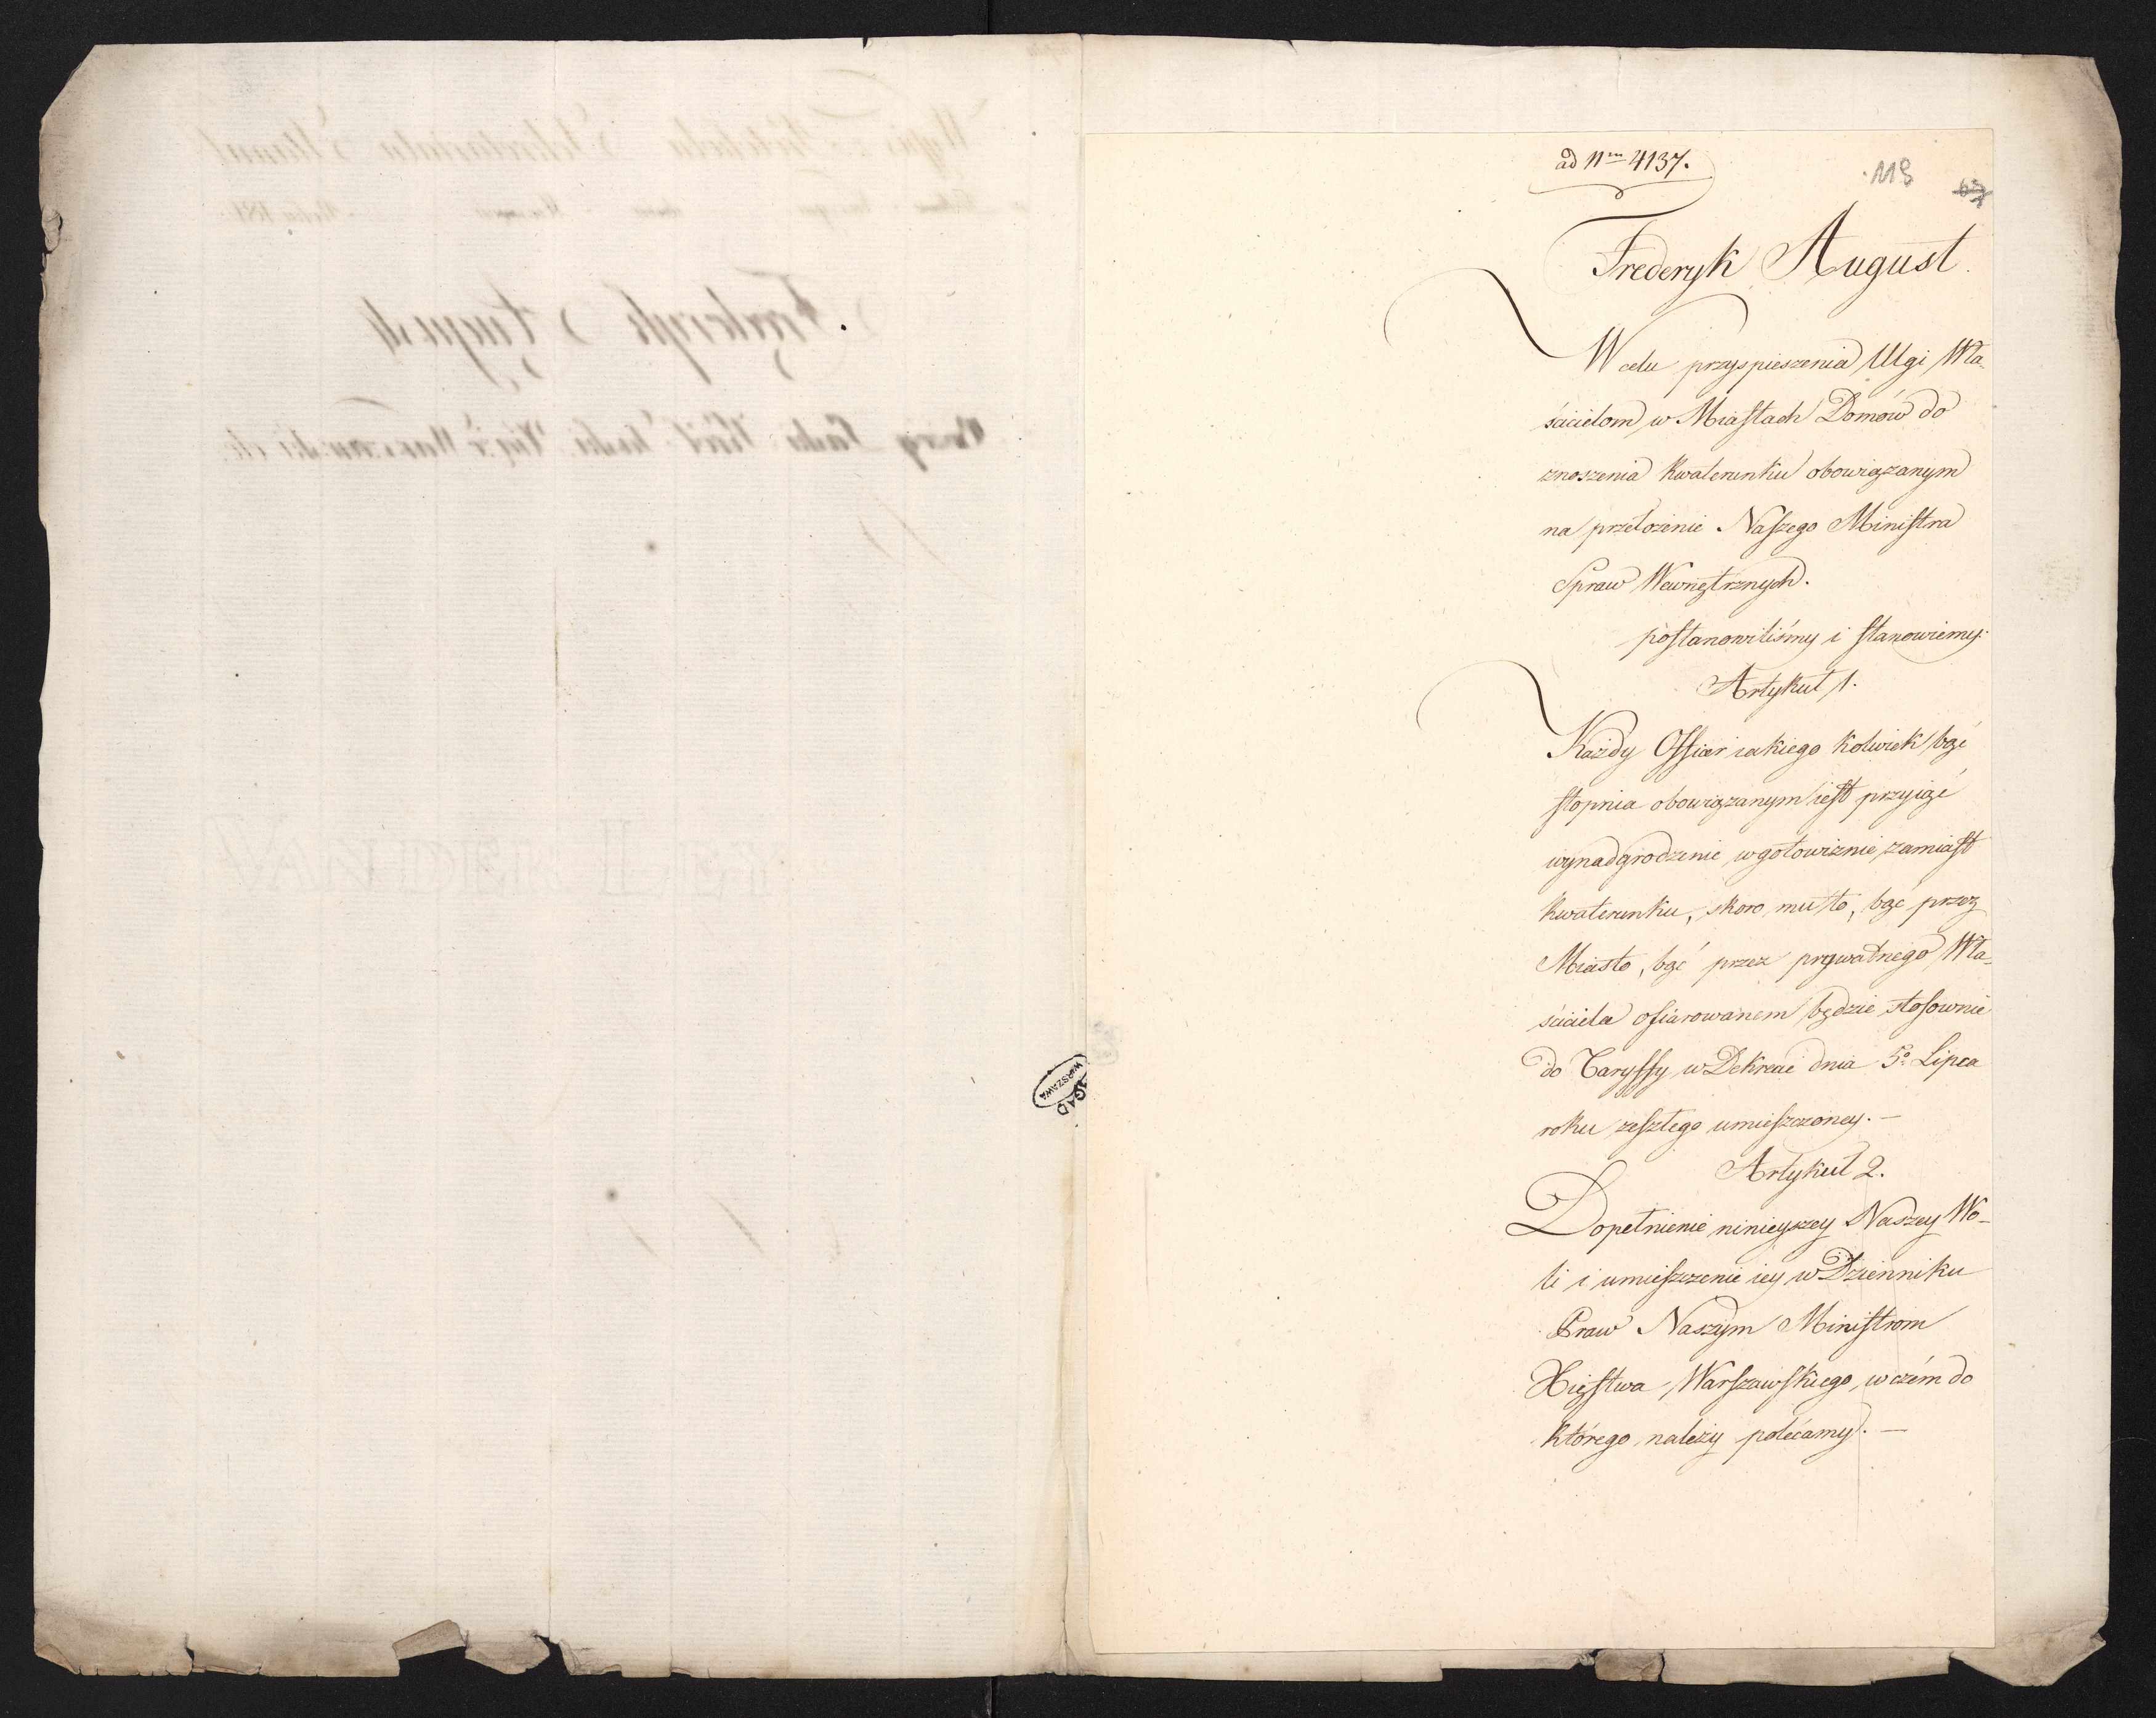 ad Nm 4137.
118
Frederyk August
W celu przyspieszenia Ulgi Wła-
ścicielom w Miastach Domów do
znoszenia kwaterunku obowiązanym
na przełożenie Naszego Ministra
Spraw Wewnętrznych.
postanowiliśmy i stanowiemy:
Artykuł 1.
Każdy Officier iakiego kolwiek bąć
stopnia obowiązanym iest przyiąć
wynadgrodzenie w gotowiznie zamiast
kwaterunku, skoro mu to, bąć przez
Miasto, bąć przez prywatnego Wła-
ściciela ofiarowanem będzie stosownie
do Taryffy w Dekrecie dnia 5o Lipca
roku zeszłego umieszczoney. —
Artykuł 2.
Dopełnienie ninieyszey Naszey Wo-
li i umieszczenie iey w Dzienniku
Praw Naszym Ministrom
Xięstwa Warszawskiego, w czém do
którego należy polécamy. —
AGAD
WARSZAWA